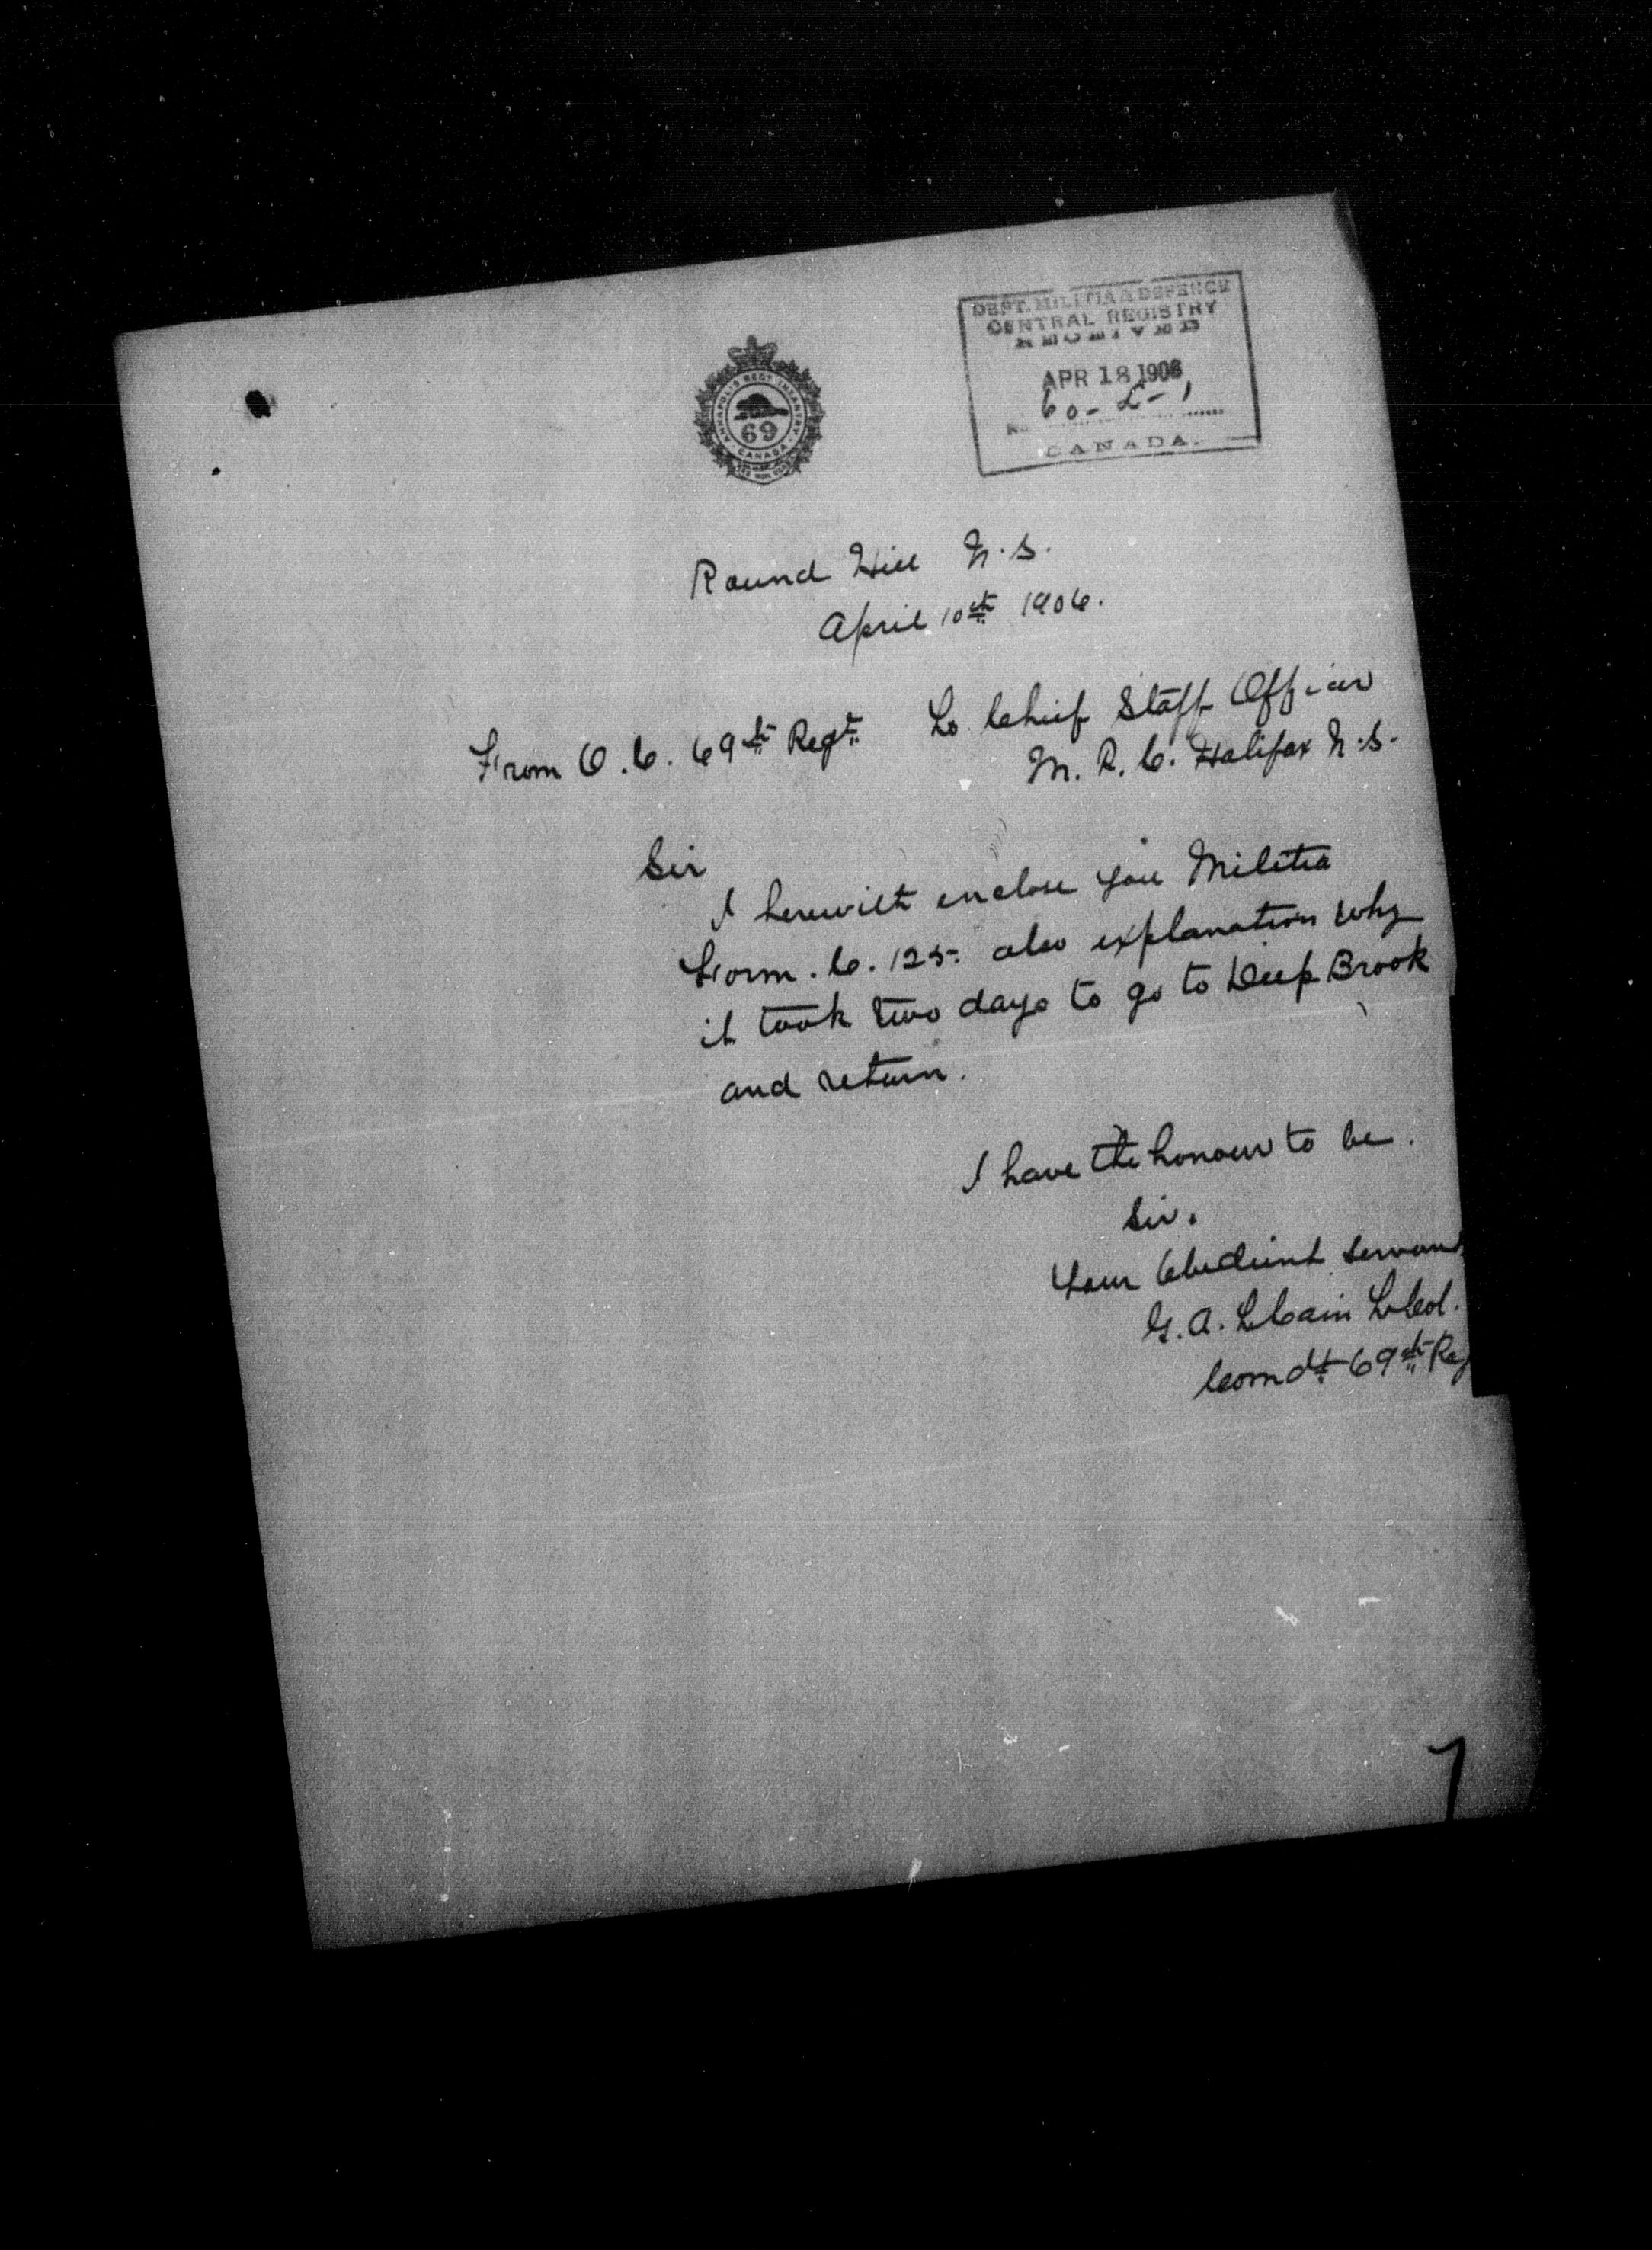 DEPT. MILITIA & DEFENCE
CENTRAL REGISTRY
RECEIVED
APR 18 1906
No. 60-L-1
CANADA.
ANNAPOLIS REGT. INFANTRY
69
CANADA
Round Hill N.S.
April 10th 1906.
From O.C. 69th Regt. To Chief Staff Officer
M.P.C. Halifax N.S.
Sir
I herewith enclose you Militia
Form. C. 125. also explanation why
it took two days to go to Deep Brook
and return.
I have the honour to be.
Sir.
Your Obedient Servant
G. A. LeCain Lt Col.
Comdt 69th Reg
7